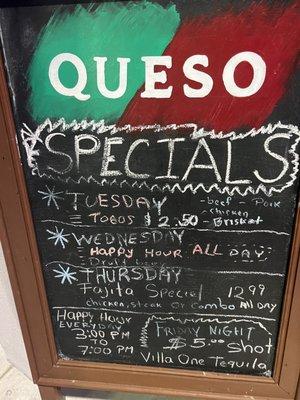 QUESO
SPECIALS
TUESDAY
Tacos $2.50
-beef- Pork
-chicken
Brisket
WEDNESDAY
HAPPY HOUR ALL DAY
THURSDAY
Fajita Special 12.99
chicken, steak or combo All DAY
HAPPY HOUR
EVERYDAY
3:00 PM
TO
7:00 PM
FRIDAY NIGHT
$5.00 SHOT
Villa One Tequila